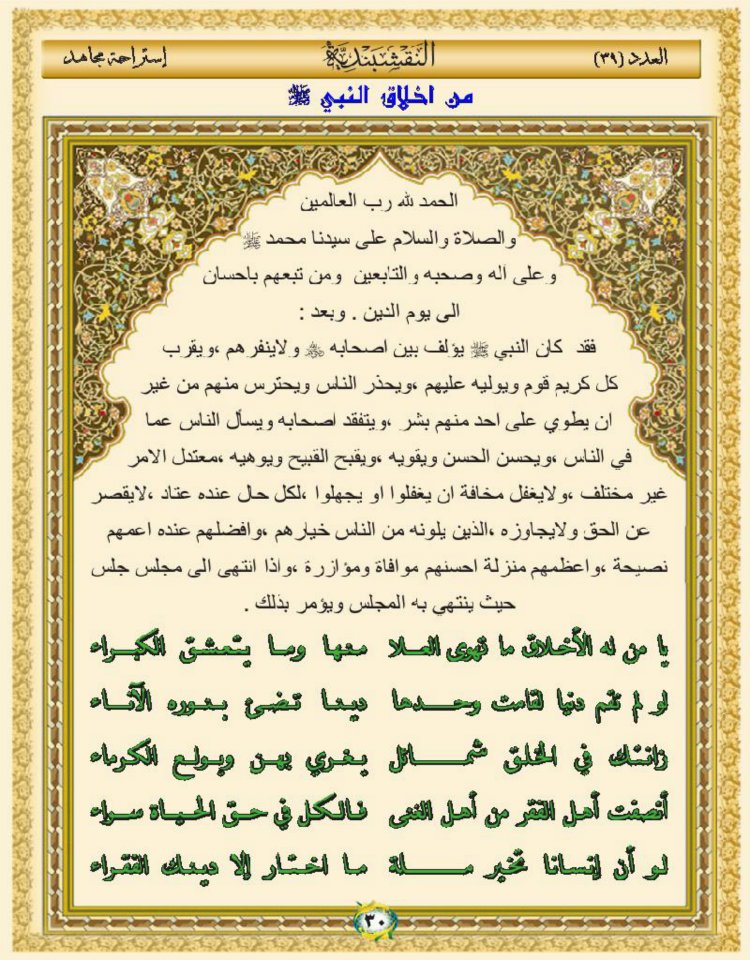 العدد (٣٩) النقشبندية إستراحة مجاهد
من اخلاق النبي ﷺ
الحمد لله رب العالمين
والصلاة والسلام على سيدنا محمد ﷺ
وعلى آله وصحبه والتابعين ومن تبعهم باحسان
الى يوم الدين . وبعد :
فقد كان النبي ﷺ يؤلف بين اصحابه ولاينفرهم ،ويقرب
كل كريم قوم ويوليه عليهم ،ويحذر الناس ويحترس منهم من غير
ان يطوي على احد منهم بشر ،ويتفقد اصحابه ويسأل الناس عما
في الناس ،ويحسن الحسن ويقويه ،ويقبح القبيح ويوهيه ،معتدل الامر
غير مختلف ،ولايغفل مخافة ان يغفلوا او يجهلوا ،لكل حال عنده عتاد ،لايقصر
عن الحق ولايجاوزه ،الذين يلونه من الناس خيارهم ،وافضلهم عنده اعمهم
نصيحة ،واعظمهم منزلة احسنهم موافاة ومؤازرة ،واذا انتهى الى مجلس جلس
حيث ينتهي به المجلس ويؤمر بذلك .
يا من له الأخلاق ما تهوى العلا منها وما يتعشق الكبراء
لو لم تقم دنيا لقامت وحدها دينا تضئ بنوره الآناء
زانتك في الخلق شمائل يغري بهن ويولع الكرماء
أنصفت أهل الفقر من أهل الغنى فالكل في حق الحياة سواء
لو أن إنسانا تخير ملة ما اختار إلا دينك الفقراء
٣٠